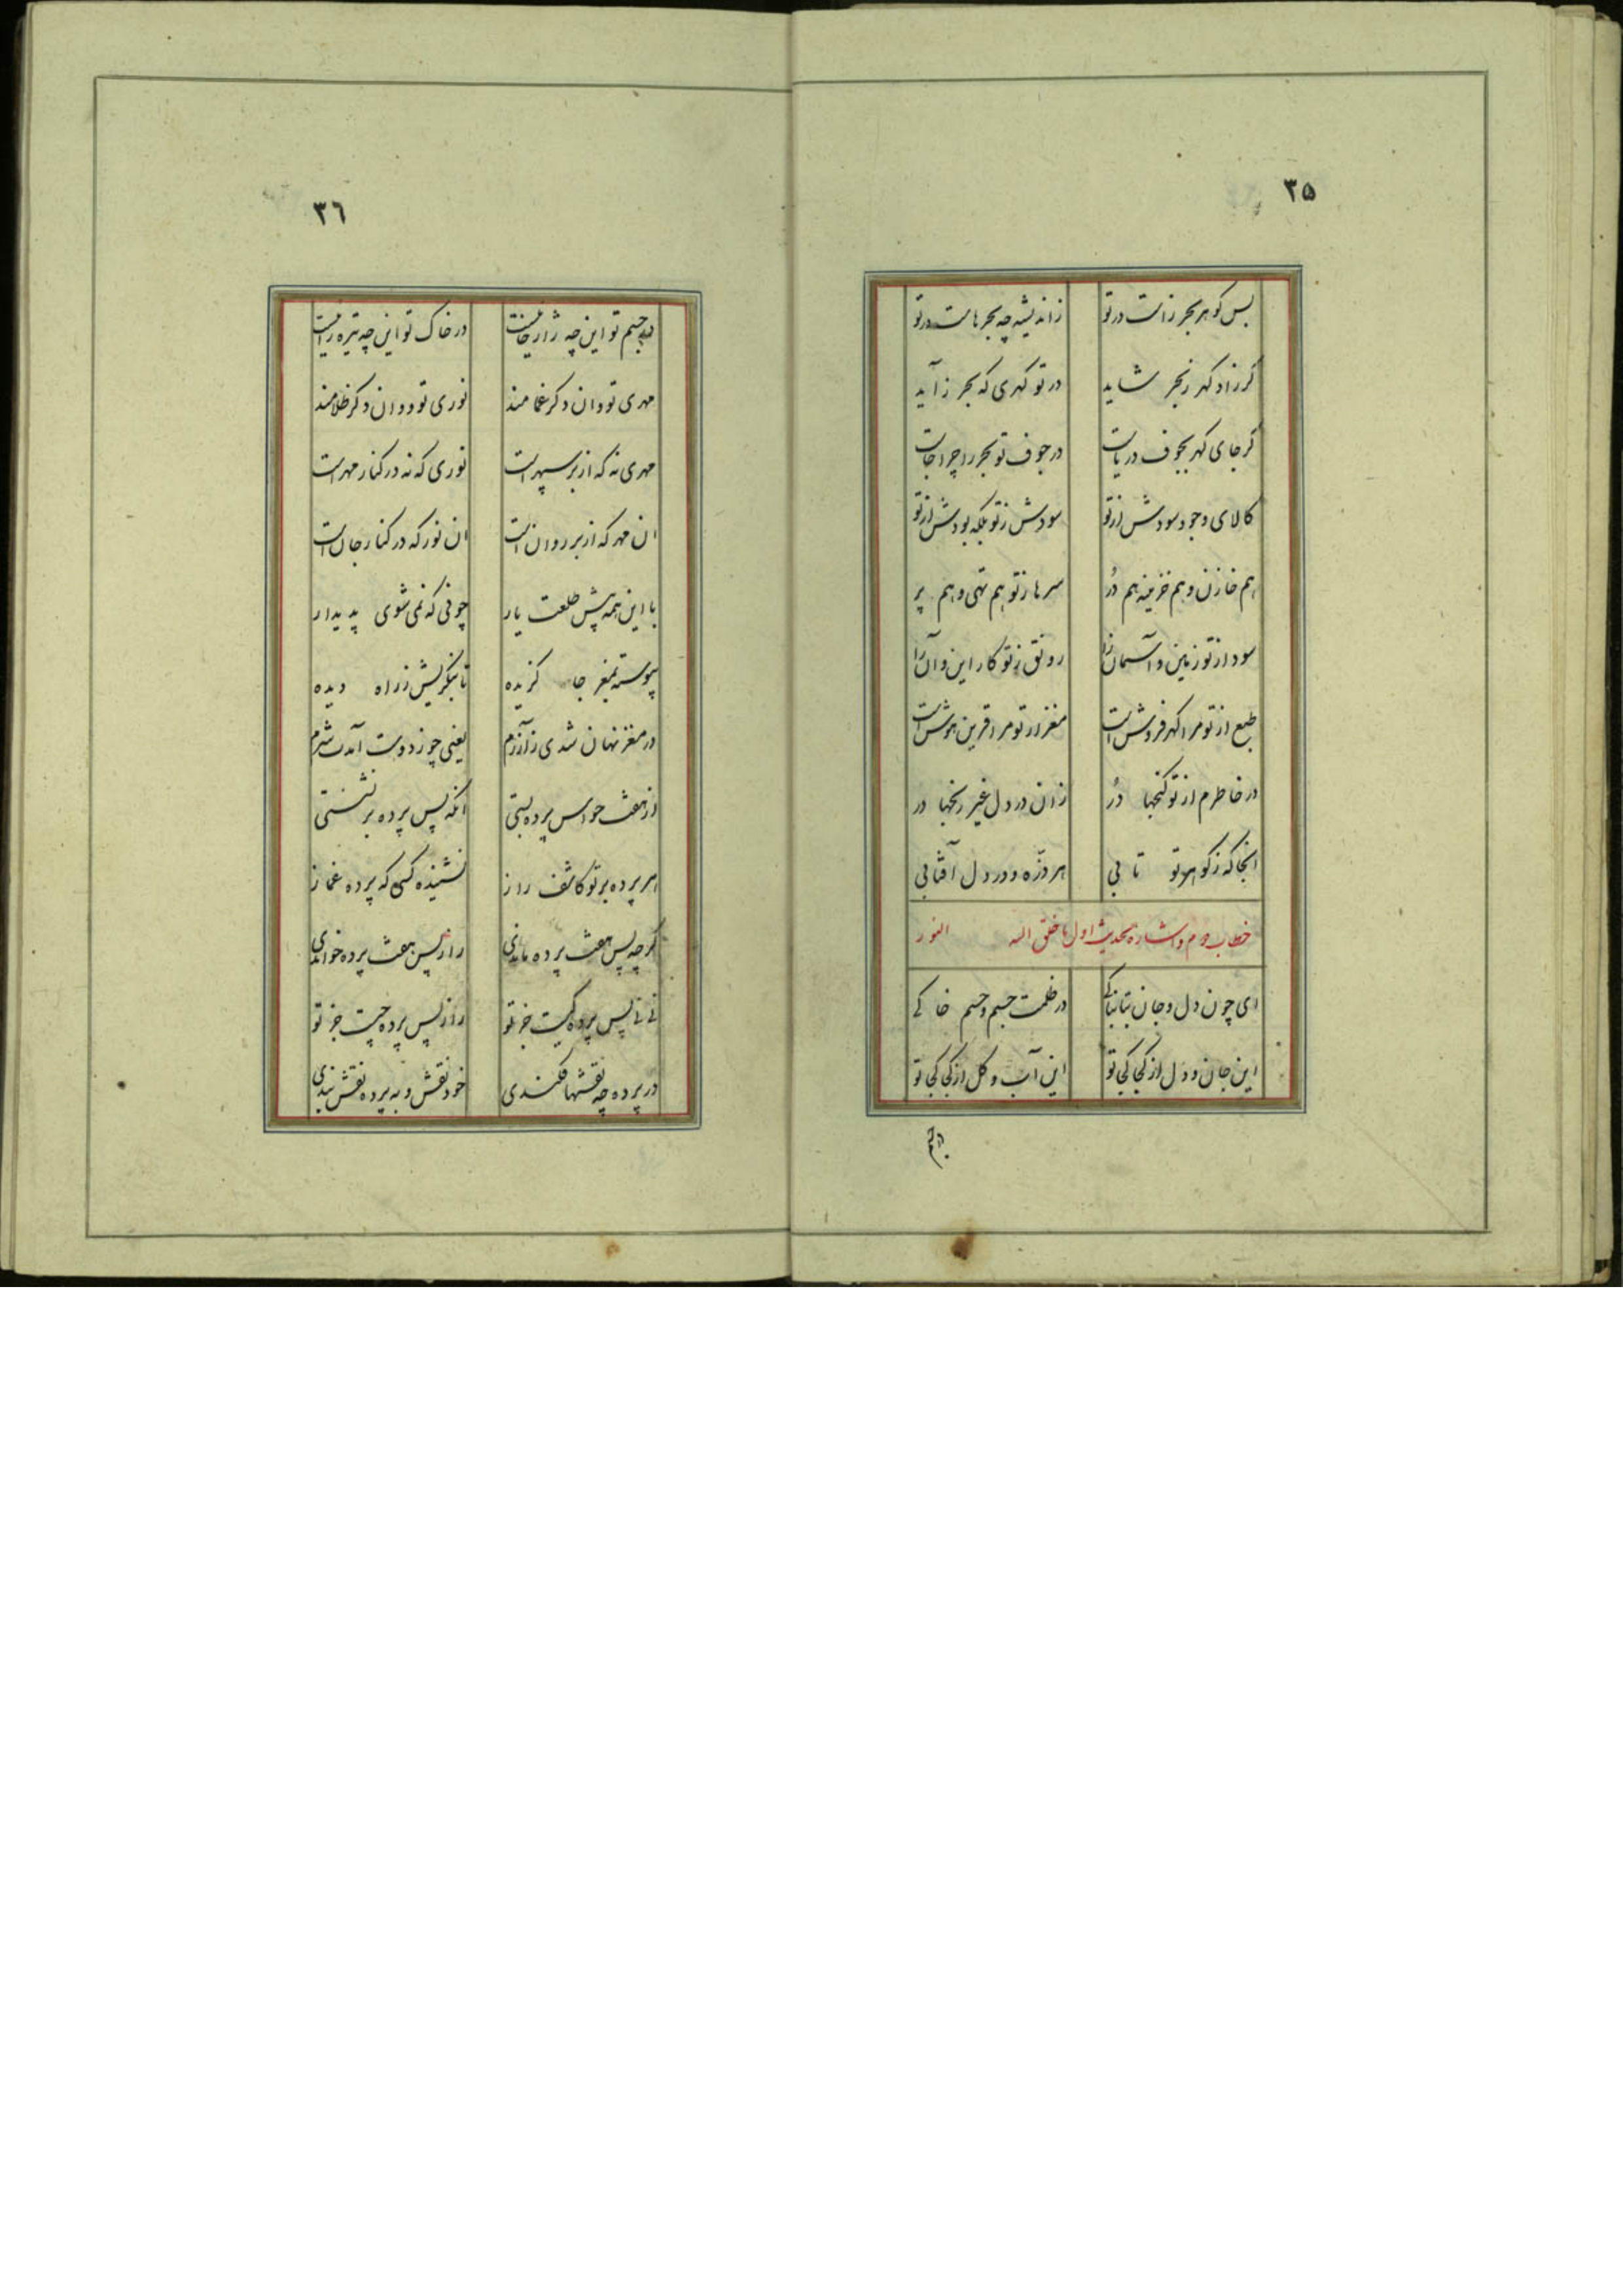 ۳۵
بس گوهر بحر زاست در تو زاندیشه چه بحرهاست در تو
گر زاد گهر ز بحر شاید در تو گهری که بحر زاید
گر جای گهر بجوف دریاست در جوف تو بحر را چرا جاست
کالای وجود سودش از تو سودش ز تو بلکه بودش از تو
هم خازن و هم خزینه هم دُر سرها ز تو هم تهی و هم پر
سود از تو زمین و آسمان را رونق ز تو کار این و آن را
طبع از تو مرا گهر فروش است مغز از تو مرا قرین هوش است
در خاطرم از تو گنجها دُر زان در دل غیر رنجها در
انجا که ز گوهر تو تابی هر ذره و در دل آفتابی
خطاب دوم و اشاره بحدیث اول ما خلق الله النور
ای چون دل و جان بتابناکی در ظلمت جسم و جسم خاکی
این جان و دل از کجا کجا تو این آب و گل از کجا کجا تو
در جسم
۳٦
در جسم تو این چه ژاژخائیست در خاک تو این چه تیره رائیست
مهری تو و ان دگر غمامند نوری تو و وان دگر ظلامند
مهری نه که از بر سپهر است نوری که نه در کنار مهر است
ان مهر که از بر روان است ان نور که در کنار جان است
با این همه پیش طلعت یار چونی که نمی شوی پدیدار
پیوسته بمغز جا گزیده تا ننگریش ز راه دیده
در مغز نهان شدی ز آزرم یعنی چو ز دوست آمدت شرم
از هفت حواس پرده بستی انگه پس پرده بر نشستی
هر پرده بر تو کاشف راز نشنیده کسی که پرده غماز
گر چه پس هفت پرده ماندی راز از پس هفت پرده خواندی
نی نی پس پرده کیست جز تو راز از پس پرده چیست جز تو
در پرده چه نقشها فکندی خود نقش و به پرده نقش بندی